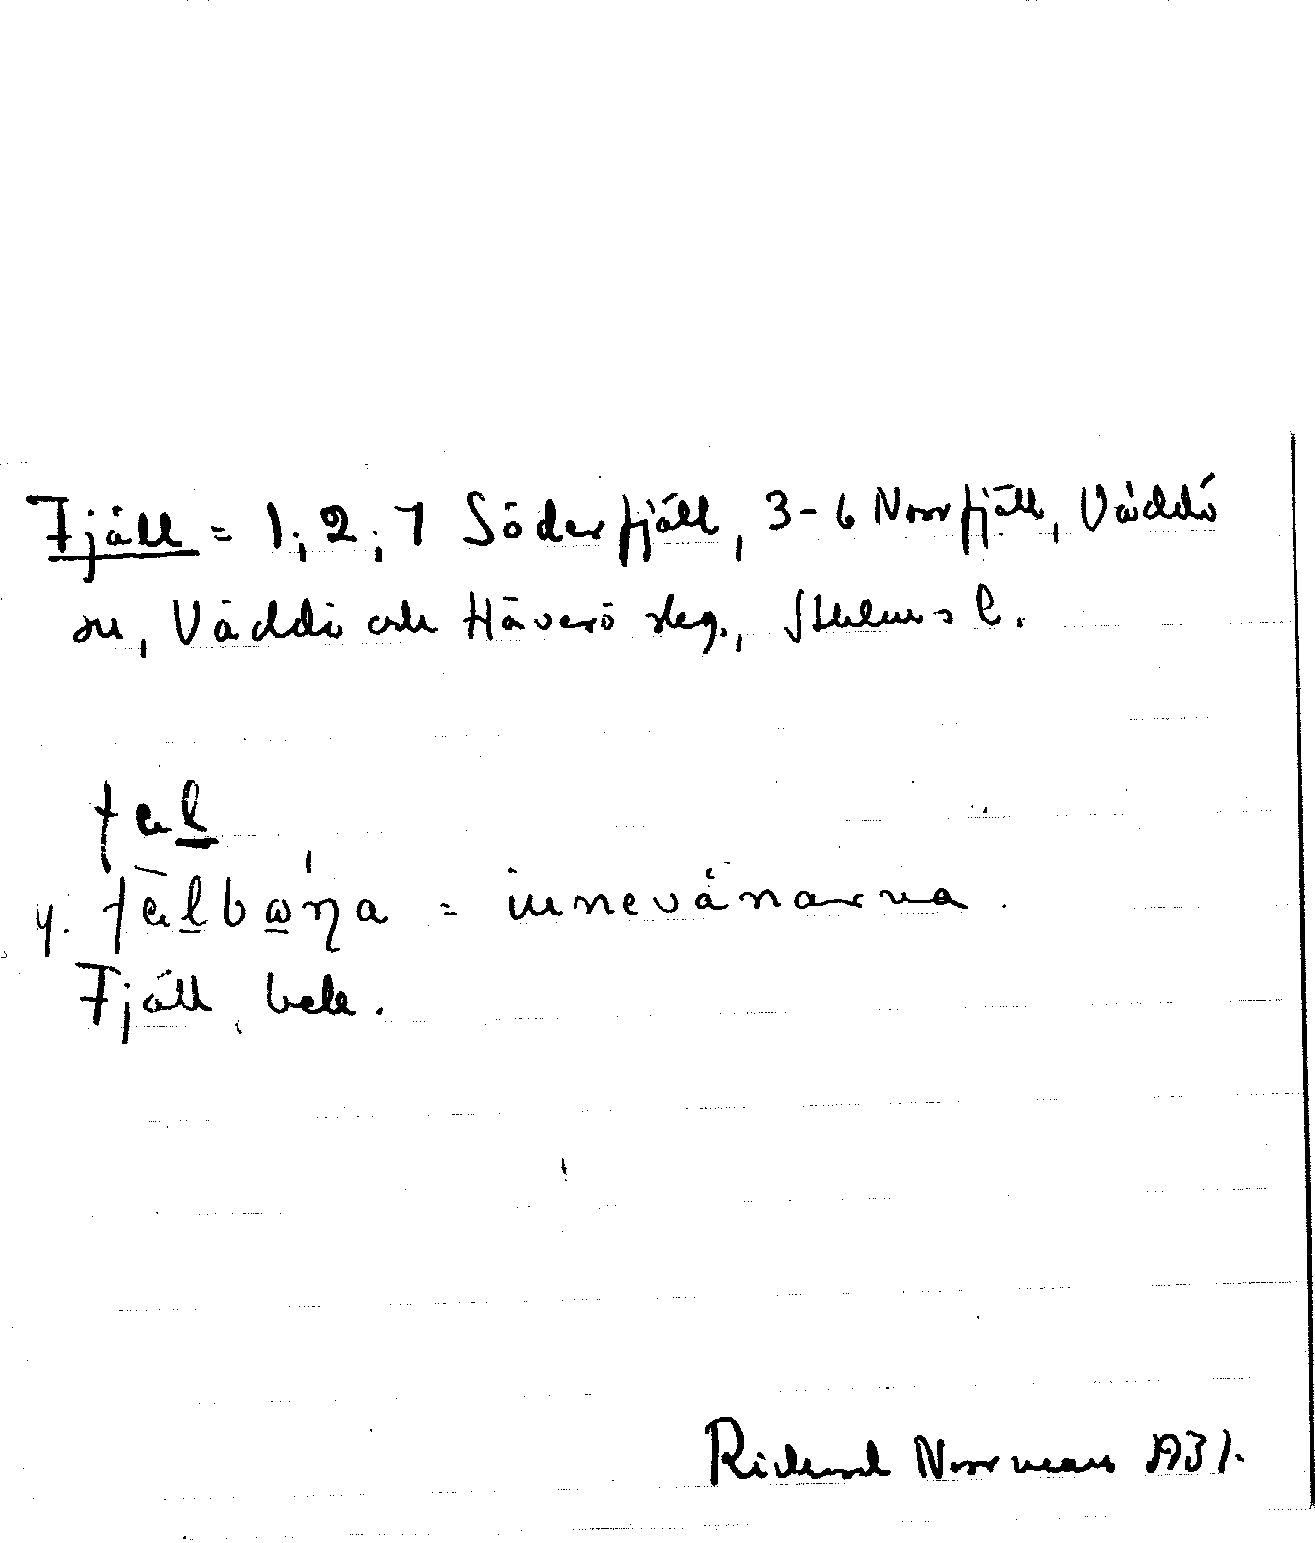 Fjäll = 1, 2, 7 Söderfjäll, 3-6 Norrfjäll, Väddö
sn, Väddö och Häverö skg., Sthlms l.
fæl
y. fælbωηa = innevånarna.
Fjäll, bek.
Richard Norrman 1931.